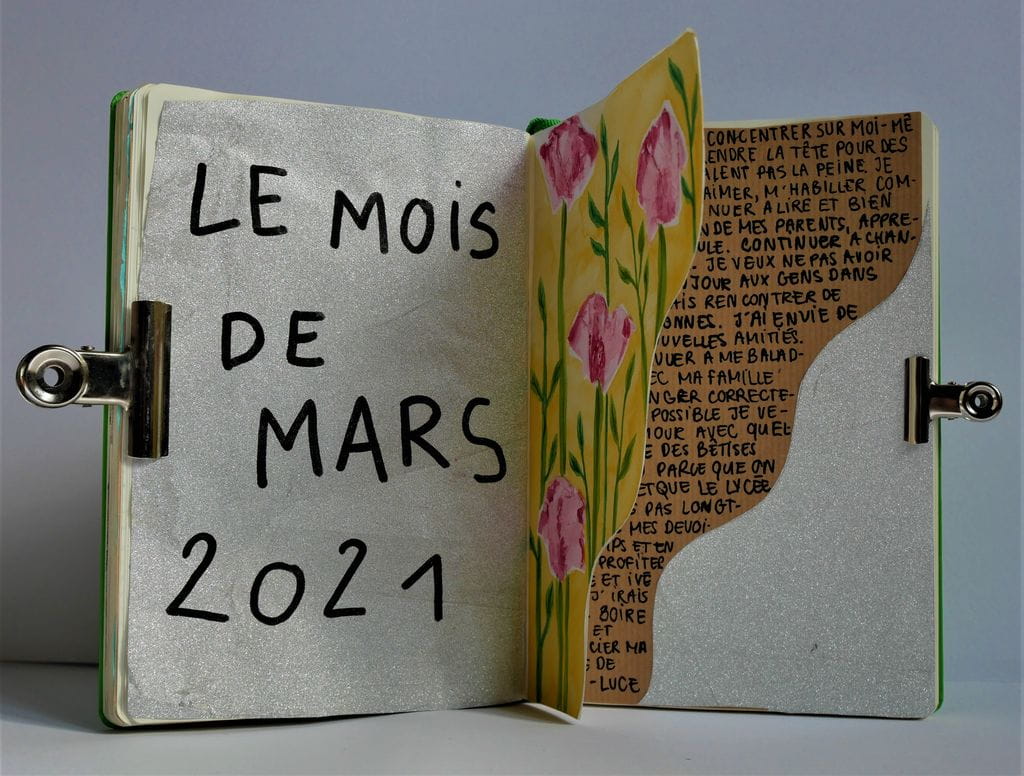 LE MOIS
DE
MARS
2021
CONCENTRER SUR MOI-MÊ
ENDRE LA TÊTE POUR DES
ALENT PAS LA PEINE. JE
AIMER, M'HABILLER COM-
NUER A LIRE ET BIEN
N DE MES PARENTS, APPRE-
ULE. CONTINUER A CHAN-
. JE VEUX NE PAS AVOIR
JOUR AUX GENS DANS
AIS RENCONTRER DE
ONNES. J'AI ENVIE DE
UVELLES AMITIÉS.
NUER A ME BALAD-
EC MA FAMILLE
NGER CORRECTE-
POSSIBLE JE VE-
MOUR AVEC QUEL
E DES BÊTISES
PARCE QUE ON
ET QUE LE LYCÉE
PAS LONGT-
MES DEVOI-
PS ET EN
PROFITER
E ET IVE
J'IRAIS
BOIRE
ET
CIER MA
DE
-LUCE